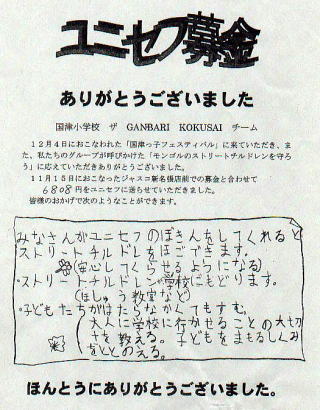 ユニセフ募金
ありがとうございました
国津小学校　ザ　GANBARI　KOKUSAI　チーム
１２月４日におこなわれた「国津っ子フェスティバル」に来ていただき、ま
た、私たちのグループが呼びかけた「モンゴルのストリートチルドレンを守ろ
う」に応えていただきありがとうございました。
１１月１５日におこなったジャスコ新名張店前での募金と合わせて
6808円をユニセフに送らせていただきました。
皆様のおかげで次のようなことができます。
みなさんがユニセフのぼきんをしてくれると
ストリートチルドレンをほごできます。
(安心してくらせるようになる)
・ストリートチルドレンが学校にもどります。
(ほしゅう教室など)
・子どもたちがはたらかなくてもすむ。
(大人に学校に行かせることの大切
さを教える。子どもをまもるしくみ
をととのえる。
ほんとうにありがとうございました。